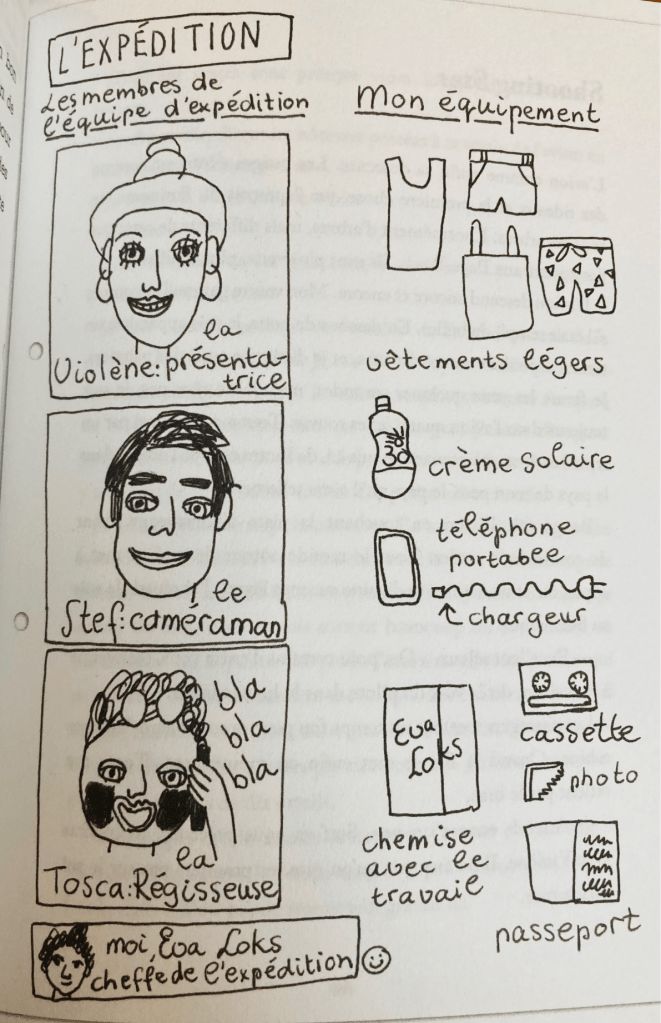 L'EXPÉDITION
Les membres de
l'équipe d'expédition
la
Violène: présenta-
trice
le
Stef: caméraman
bla
bla
bla
la
Tosca: Régisseuse
moi, Eva Loks
cheffe de l'expédition
Mon équipement
vêtements légers
30
crème solaire
téléphone
portable
chargeur
Eva
Loks
chemise
avec le
travail
cassette
photo
passeport